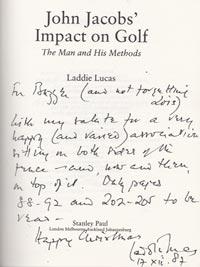 John Jacobs'
Impact on Golf
The Man and His Methods
Laddie Lucas
For (and not forgetting
Lois)
with my salute for a very
happy (and varied) association
sitting on both sides of the
fence – and, now and then,
on top of it. Only pages
88-92 and 202-205 to be
read –
Stanley Paul
London Melbourne Auckland Johannesburg
Happy Christmas
17 XII 87